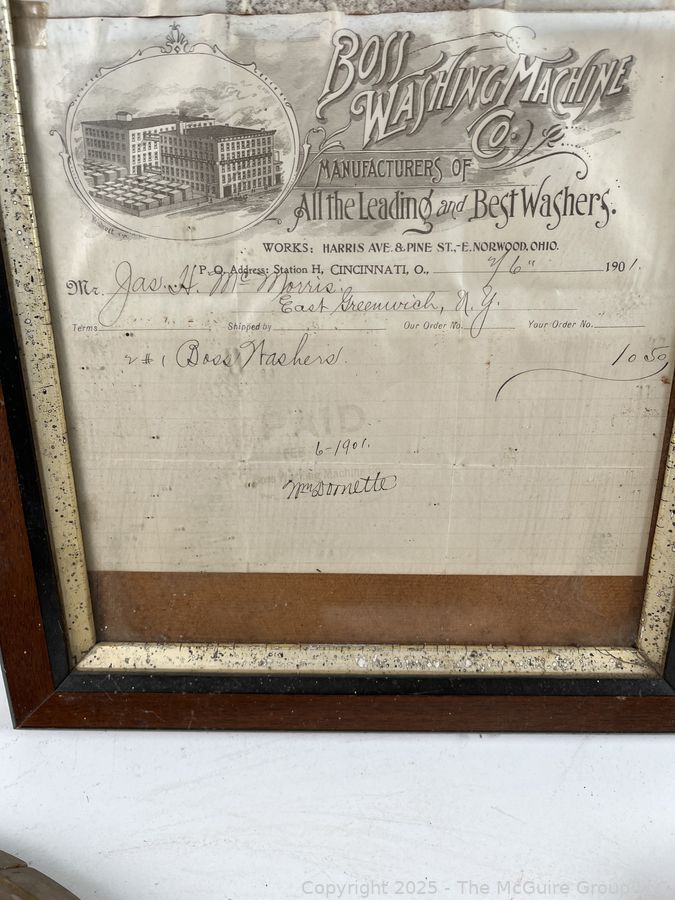 BOSS
WASHING MACHINE
CO.
MANUFACTURERS OF
All the Leading and Best Washers.
WORKS: HARRIS AVE. & PINE ST.,-E. NORWOOD, OHIO.
P. O. Address: Station H, CINCINNATI, O., 2/6" 1901.
Mr. Jas. H. McMorris.
East Greenwich, N.Y.
Terms Shipped by Our Order No. Your Order No.
2 #1 Boss Washers. 10 50
PAID
FEB
6-1901.
Washing Machine
Wm Dornette
Copyright 2025 - The McGuire Group LLC